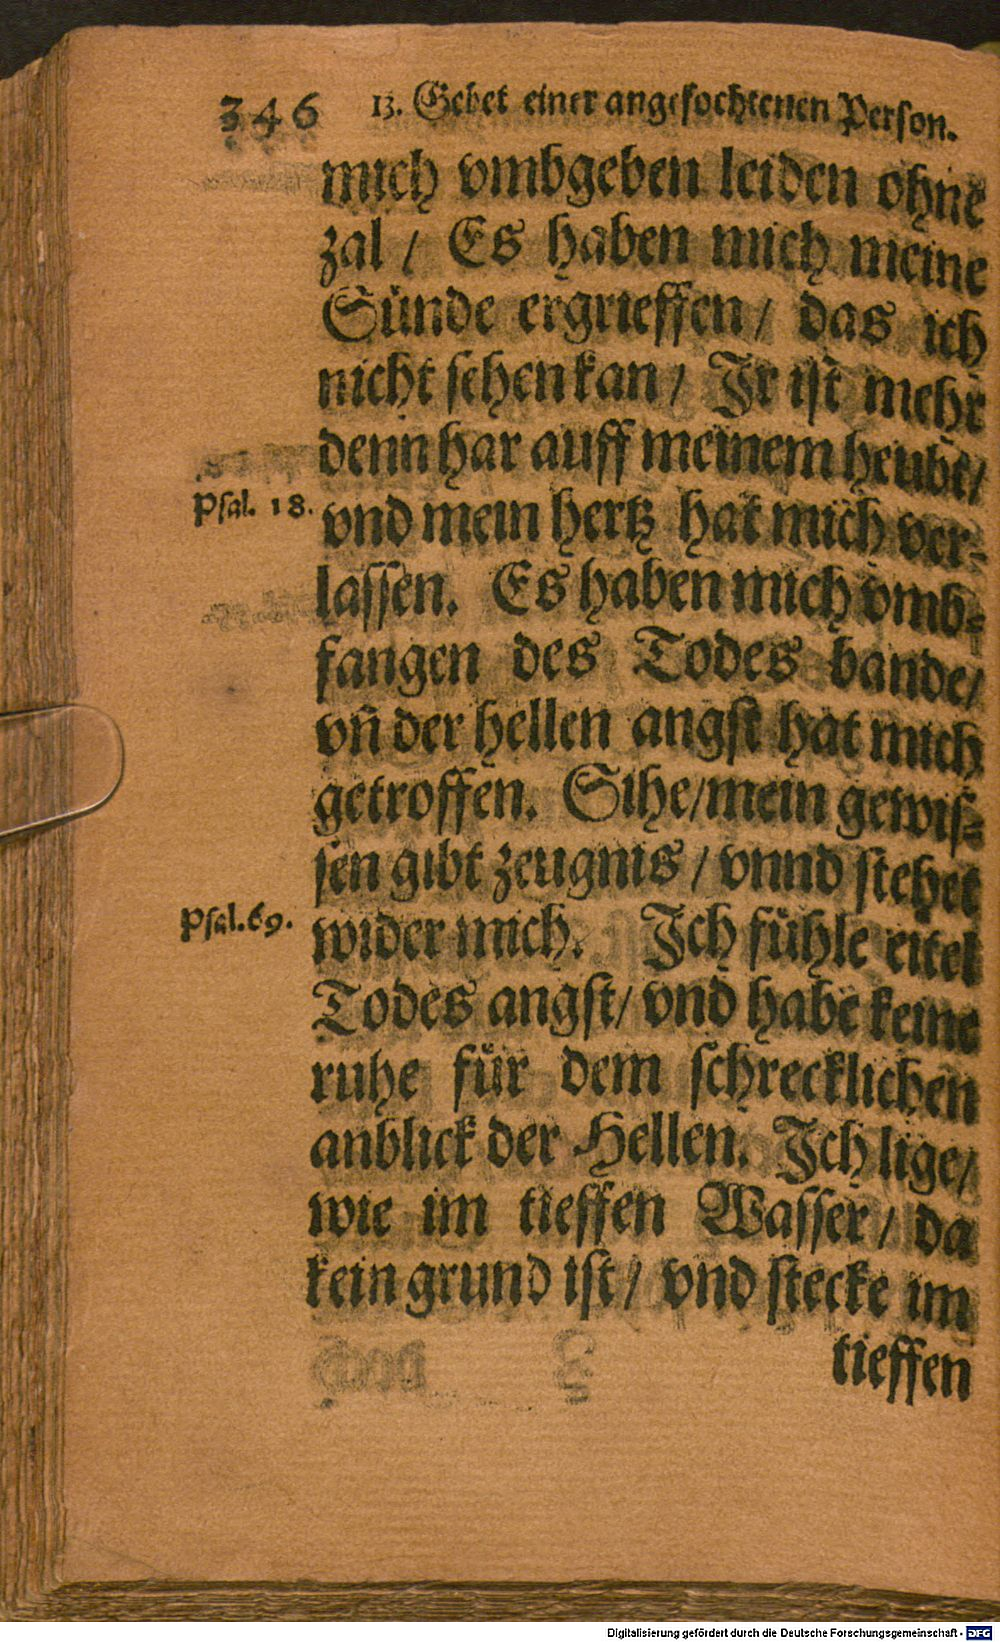 346 13. Gebet einer angefochtenen Person.
mich vmbgeben leiden ohne
zal / Es haben mich meine
Sünde ergrieffen / das ich
nicht sehen kan / Ir ist mehr
denn har auff meinem heubt /
Psal. 18. vnd mein hertz hat mich ver-
lassen. Es haben mich vmb-
fangen des Todes bande /
vñ der hellen angst hat mich
getroffen. Sihe / mein gewis-
sen gibt zeugnis / vnnd stehet
Psal. 69. wider mich. Ich fühle eitel
Todes angst / vnd habe keine
ruhe für dem schrecklichen
anblick der Hellen. Ich lige /
wie im tieffen Wasser / da
kein grund ist / vnd stecke im
tieffen
Digitalisierung gefördert durch die Deutsche Forschungsgemeinschaft - DFG